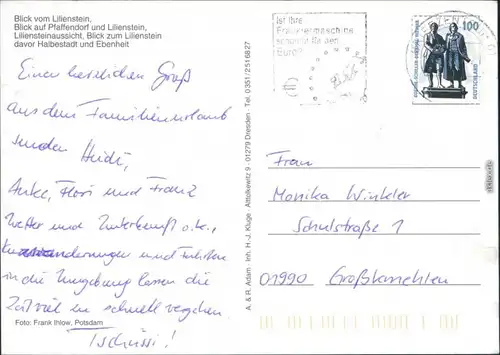 Blick vom Lilienstein,
Blick auf Pfaffendorf und Lilienstein,
Liliensteinaussicht, Blick zum Lilienstein
davor Halbestadt und Ebenheit
Einen herzlichen Gruß
aus dem Familienurlaub
senden Heidi,
Anke, Flori und Franz
Wetter und Unterkunft o.k.,
und
in die Umgebung lassen die
Zeit viel zu schnell vergehen
Tschüssi!
Foto: Frank Ihlow, Potsdam
A. & R. Adam · Inh. H.-J. Kluge · Altolkewitz 9 · 01279 Dresden · Tel. 0351/2516827
Ist Ihre
Frankiermaschine
schon fit für den
Euro?
100
DEUTSCHLAND
GOETHE-SCHILLER-DENKMAL WEIMAR
Frau
Monika Winkler
Schulstraße 1
01990 Großkmehlen